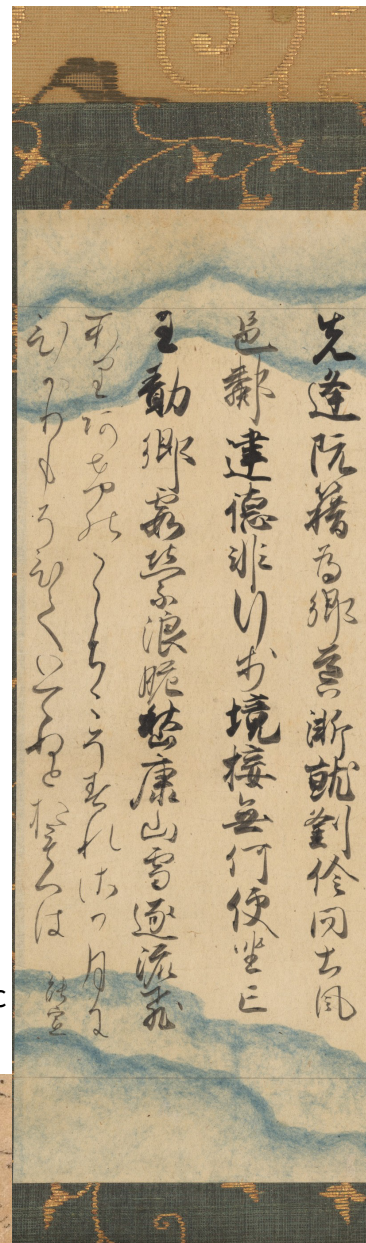 先逢阮籍為郷導漸就劉伶問土風
邑鄰建德非行歩境接無何便坐亡
王勣郷霞縈浪脆嵆康山雪逐流飛
ありあけのこゝちこそすれさか月に
ひかりもそひていてぬとおもへは 能宣